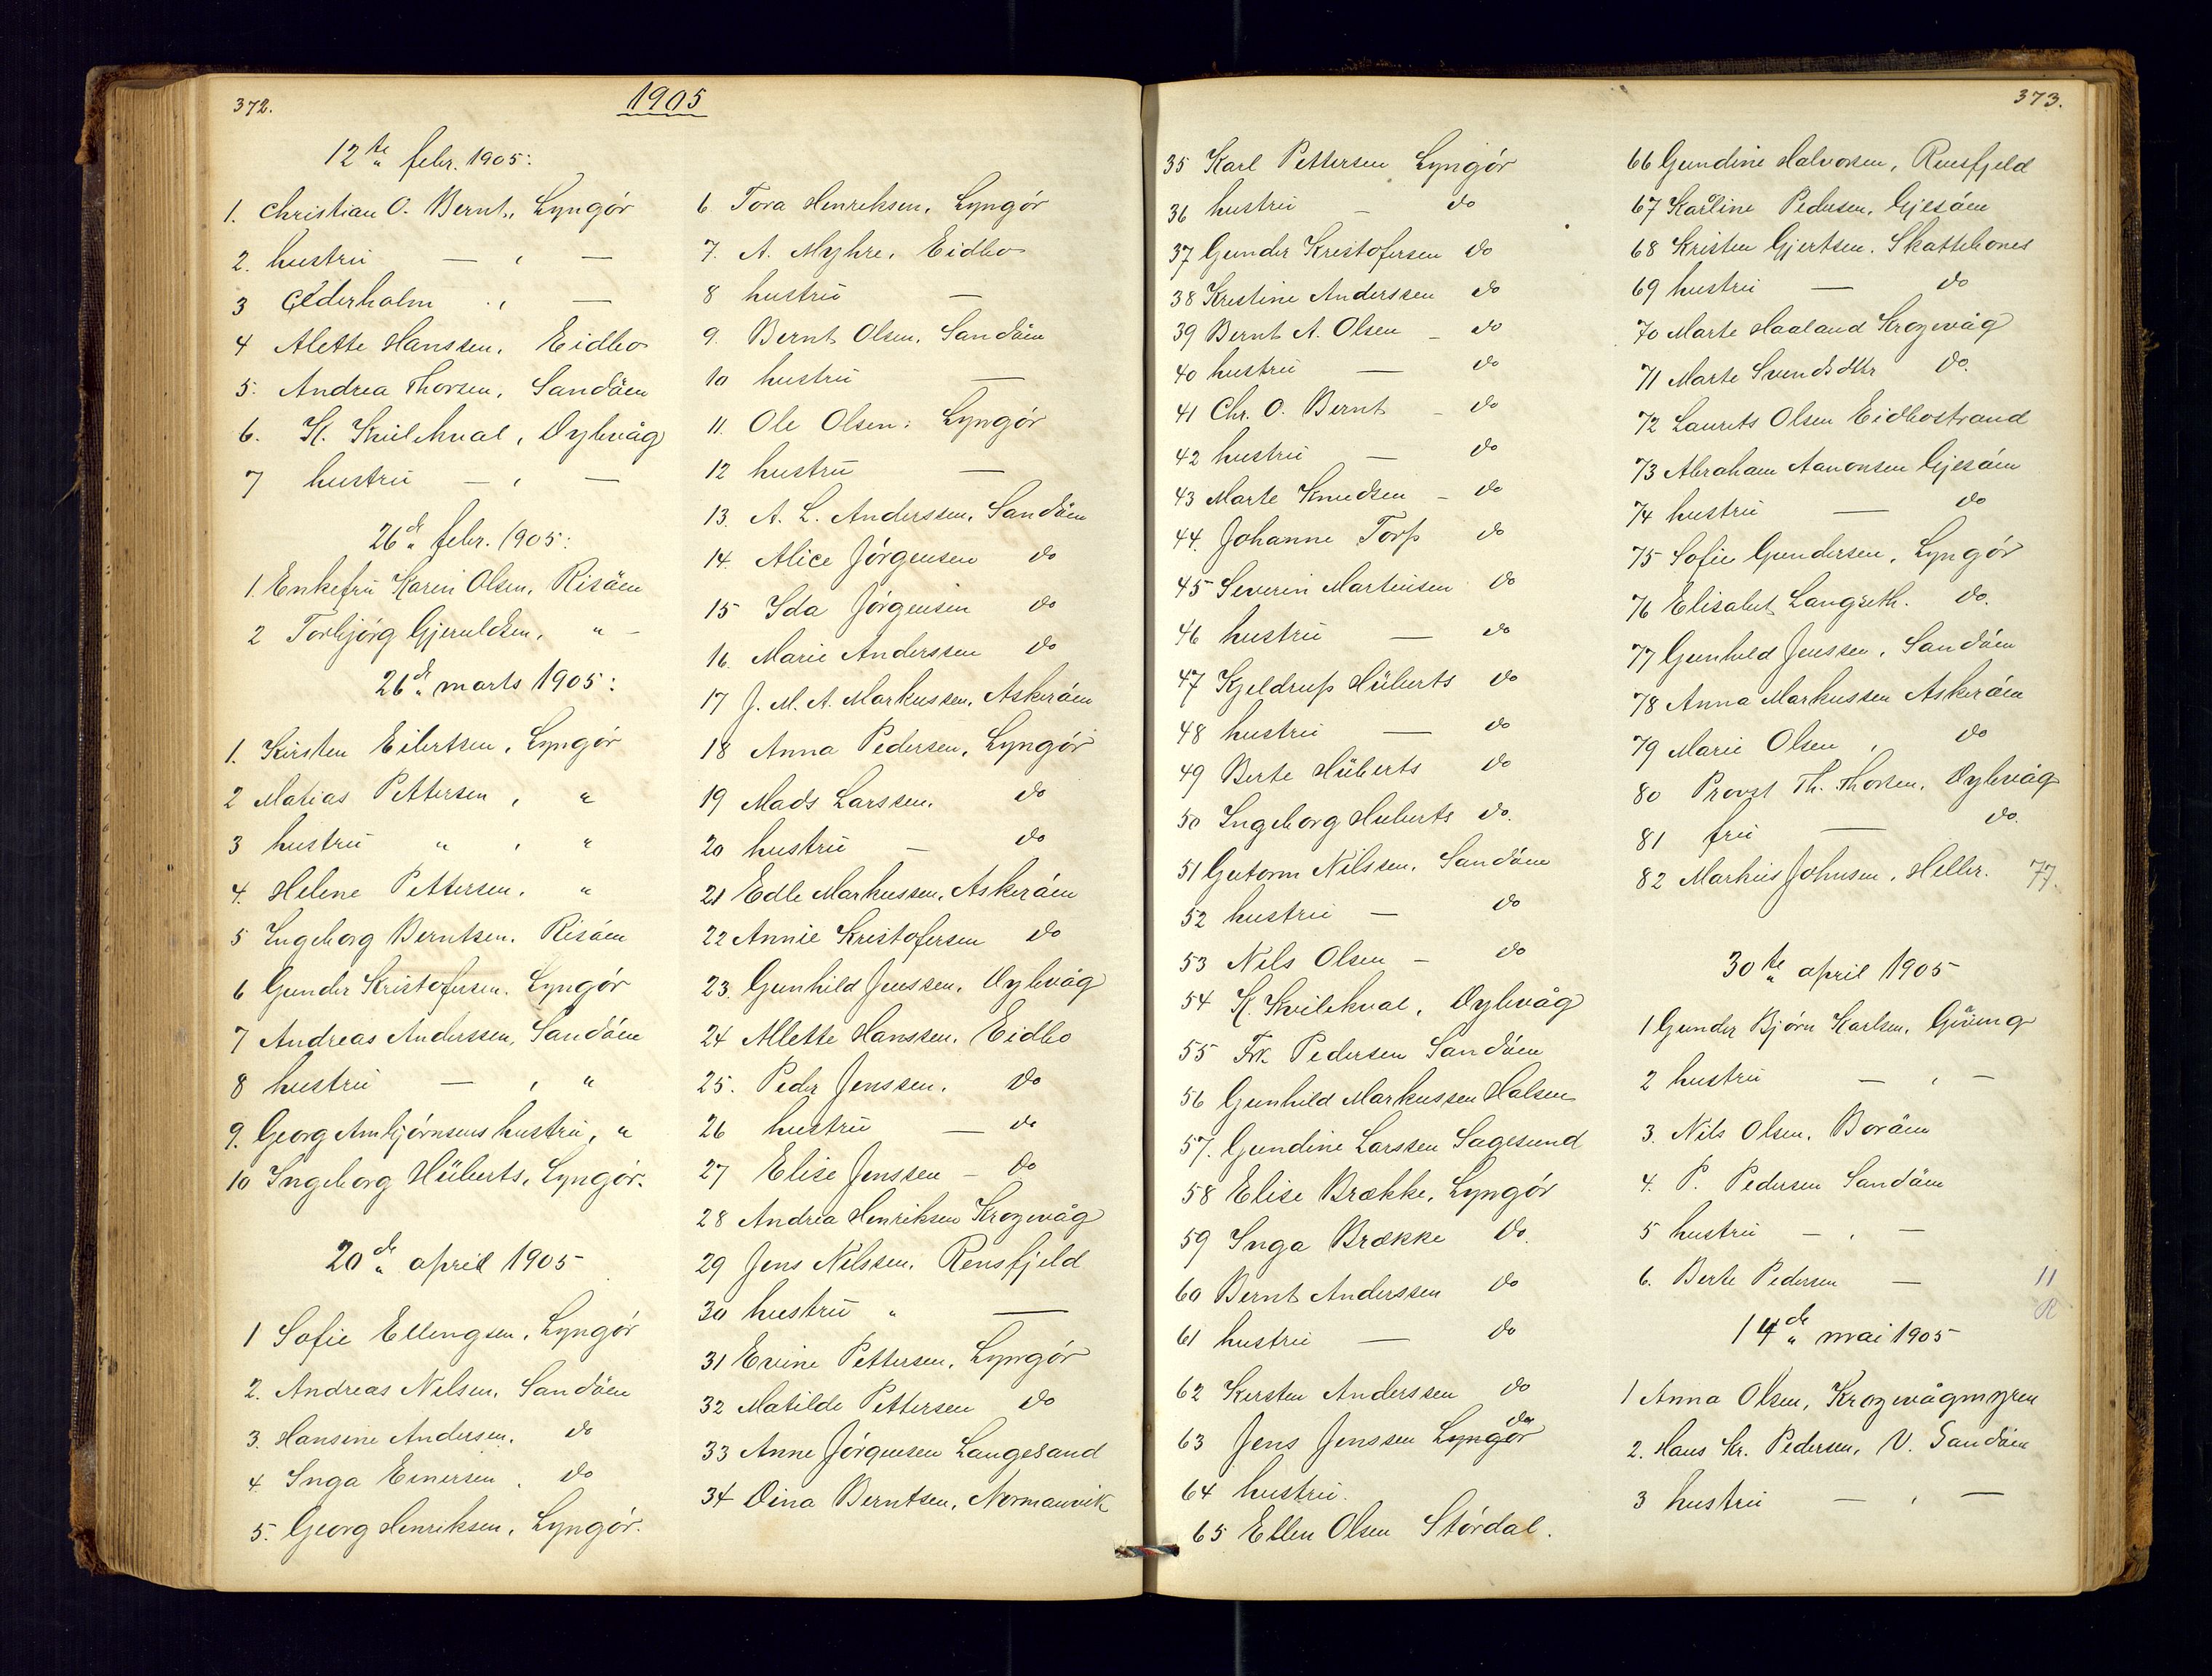 372.
1905
12te febr. 1905:
1. Christian O. Bernt, Lyngör
2. hustru — , —
3 Cederholm . , —
4 Alette Hanssen, Eidbo
5. Andrea Thorsen, Sandöen
6. K. Kvilekval, Dybvåg
7 hustru — , —
26de febr. 1905:
1. Enkefru Karen Olsen, Risöen
2 Torbjörg Gjeruldsen, " —
26de marts 1905:
1. Kirsten Eilertsen, Lyngör
2 Matias Pettersen , "
3 hustru " , "
4. Helene Pettersen, "
5 Ingeborg Berntsen, Risöen
6 Gunder Kristofersen, Lyngör
7 Andreas Anderssen, Sandöen
8 hustru — , "
9. Georg Arnbjörnsens hustru, "
10 Ingeborg Hüberts, Lyngör.
20de april 1905
1 Sofie Ellengsen, Lyngör
2. Andreas Nilsen, Sandöen
3. Hansine Andersen, do
4 Inga Einersen , do
5. Georg Henriksen, Lyngör.
6 Tora Henriksen, Lyngör
7. A. Myhre, Eidbo
8 hustru —
9. Bernt Olsen, Sandöen
10 hustru —
11. Ole Olsen, Lyngör
12 hustru —
13. A. L. Anderssen, Sandöen
14. Alice Jörgensen do
15 Ida Jörgensen do
16. Marie Anderssen do
17 J. M. A. Markussen, Askeröen
18 Anna Pedersen, Lyngör
19 Mads Larssen, do
20 hustru — do
21 Edle Markussen, Askeröen
22 Annie Kristofersen do
23. Gunhild Jenssen, Dybvåg
24 Allette Hanssen, Eidbo
25. Peder Jenssen, do
26 hustru — do
27 Elise Jenssen — do
28 Andrea Henriksen Krogevåg
29 Jens Nilssen, Rensfjeld
30 hustru " —
31 Evine Pettersen, Lyngör
32 Matilde Pettersen do
33 Anne Jörgensen Langesand
34 Dina Berntsen, Normanvik
373.
35 Karl Pettersen Lyngör
36 hustru — do
37 Gunder Kristofersen do
38 Kristine Anderssen do
39 Bernt A. Olsen — do
40 hustru — do
41 Chr. O. Bernt — do
42 hustru — do
43 Marte Knudsen — do
44. Johanne Torp do
45 Severin Martinsen do
46 hustru — do
47 Kjeldrup Hüberts do
48 hustru — do
49 Berte Hüberts do
50 Ingeborg Huberts do.
51 Gutorm Nilssen, Sandöen
52 hustru — do
53 Nils Olsen — do
54 K. Kvilekval, Dybvåg
55 Frk. Pedersen Sandöen
56 Gunhild Markussen Halsen
57. Gundine Larssen Sagesund
58 Elise Brække, Lyngör
59 Inga Brække do.
60 Bernt Anderssen do
61 hustru — do
62 Kirsten Anderssen do
63 Jens Jenssen Lyngör
64 hustru.
65 Ellen Olsen Stördal.
66 Gundine Halvorsen, Rensfjeld
67 Karline Pedersen, Gjesöen
68 Kristen Gjertsen. Skattebones
69 hustru — do
70 Marte Haaland Krogevåg
71 Marte Svendsdtr do.
72 Laurits Olsen Eidbostrand
73 Abraham Aanonsen Gjesöen
74 hustru — do
75 Sofie Gundersen, Lyngör
76 Elisabet Langseth. do.
77 Gunhild Jenssen, Sandöen
78 Anna Markussen Askeröen
79 Marie Olsen , do
80 Provst Th. Thorsen, Dybvåg
81 fru — do.
82 Markus Johnsen, Heller. 77.
30te april 1905
1 Gunder Bjørn Karlsen, Gjeving
2 hustru — , —
3. Nils Olsen, Boröen
4. P. Pedersen Sandöen
5 hustru — , —
6. Berte Pedersen — 11
14de mai 1905
1 Anna Olsen, Krogevågmyren
2. Hans Kr. Pedersen, V. Sandöen
3 hustru — , —